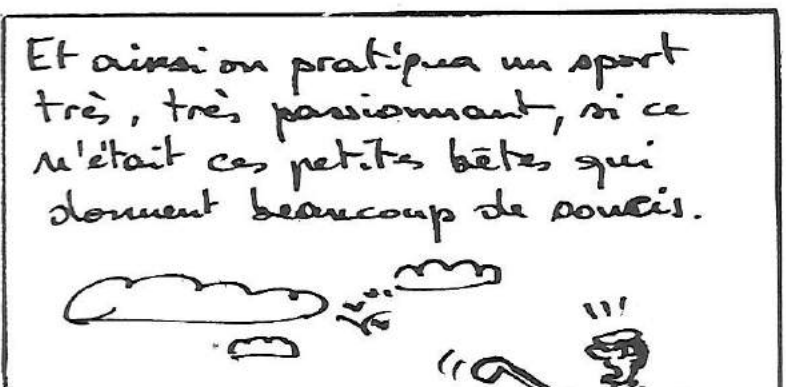 Et ainsi on pratiqua un sport
très, très passionnant, si ce
n'était ces petites bêtes qui
donnent beaucoup de soucis.